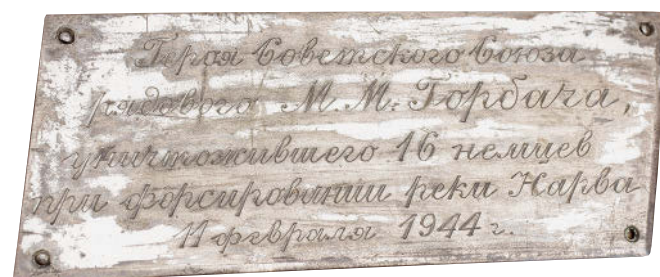 Героя Советского Союза
рядового М. М. Горбача,
уничтожившего 16 немцев
при форсировании реки Нарва
11 февраля 1944 г.